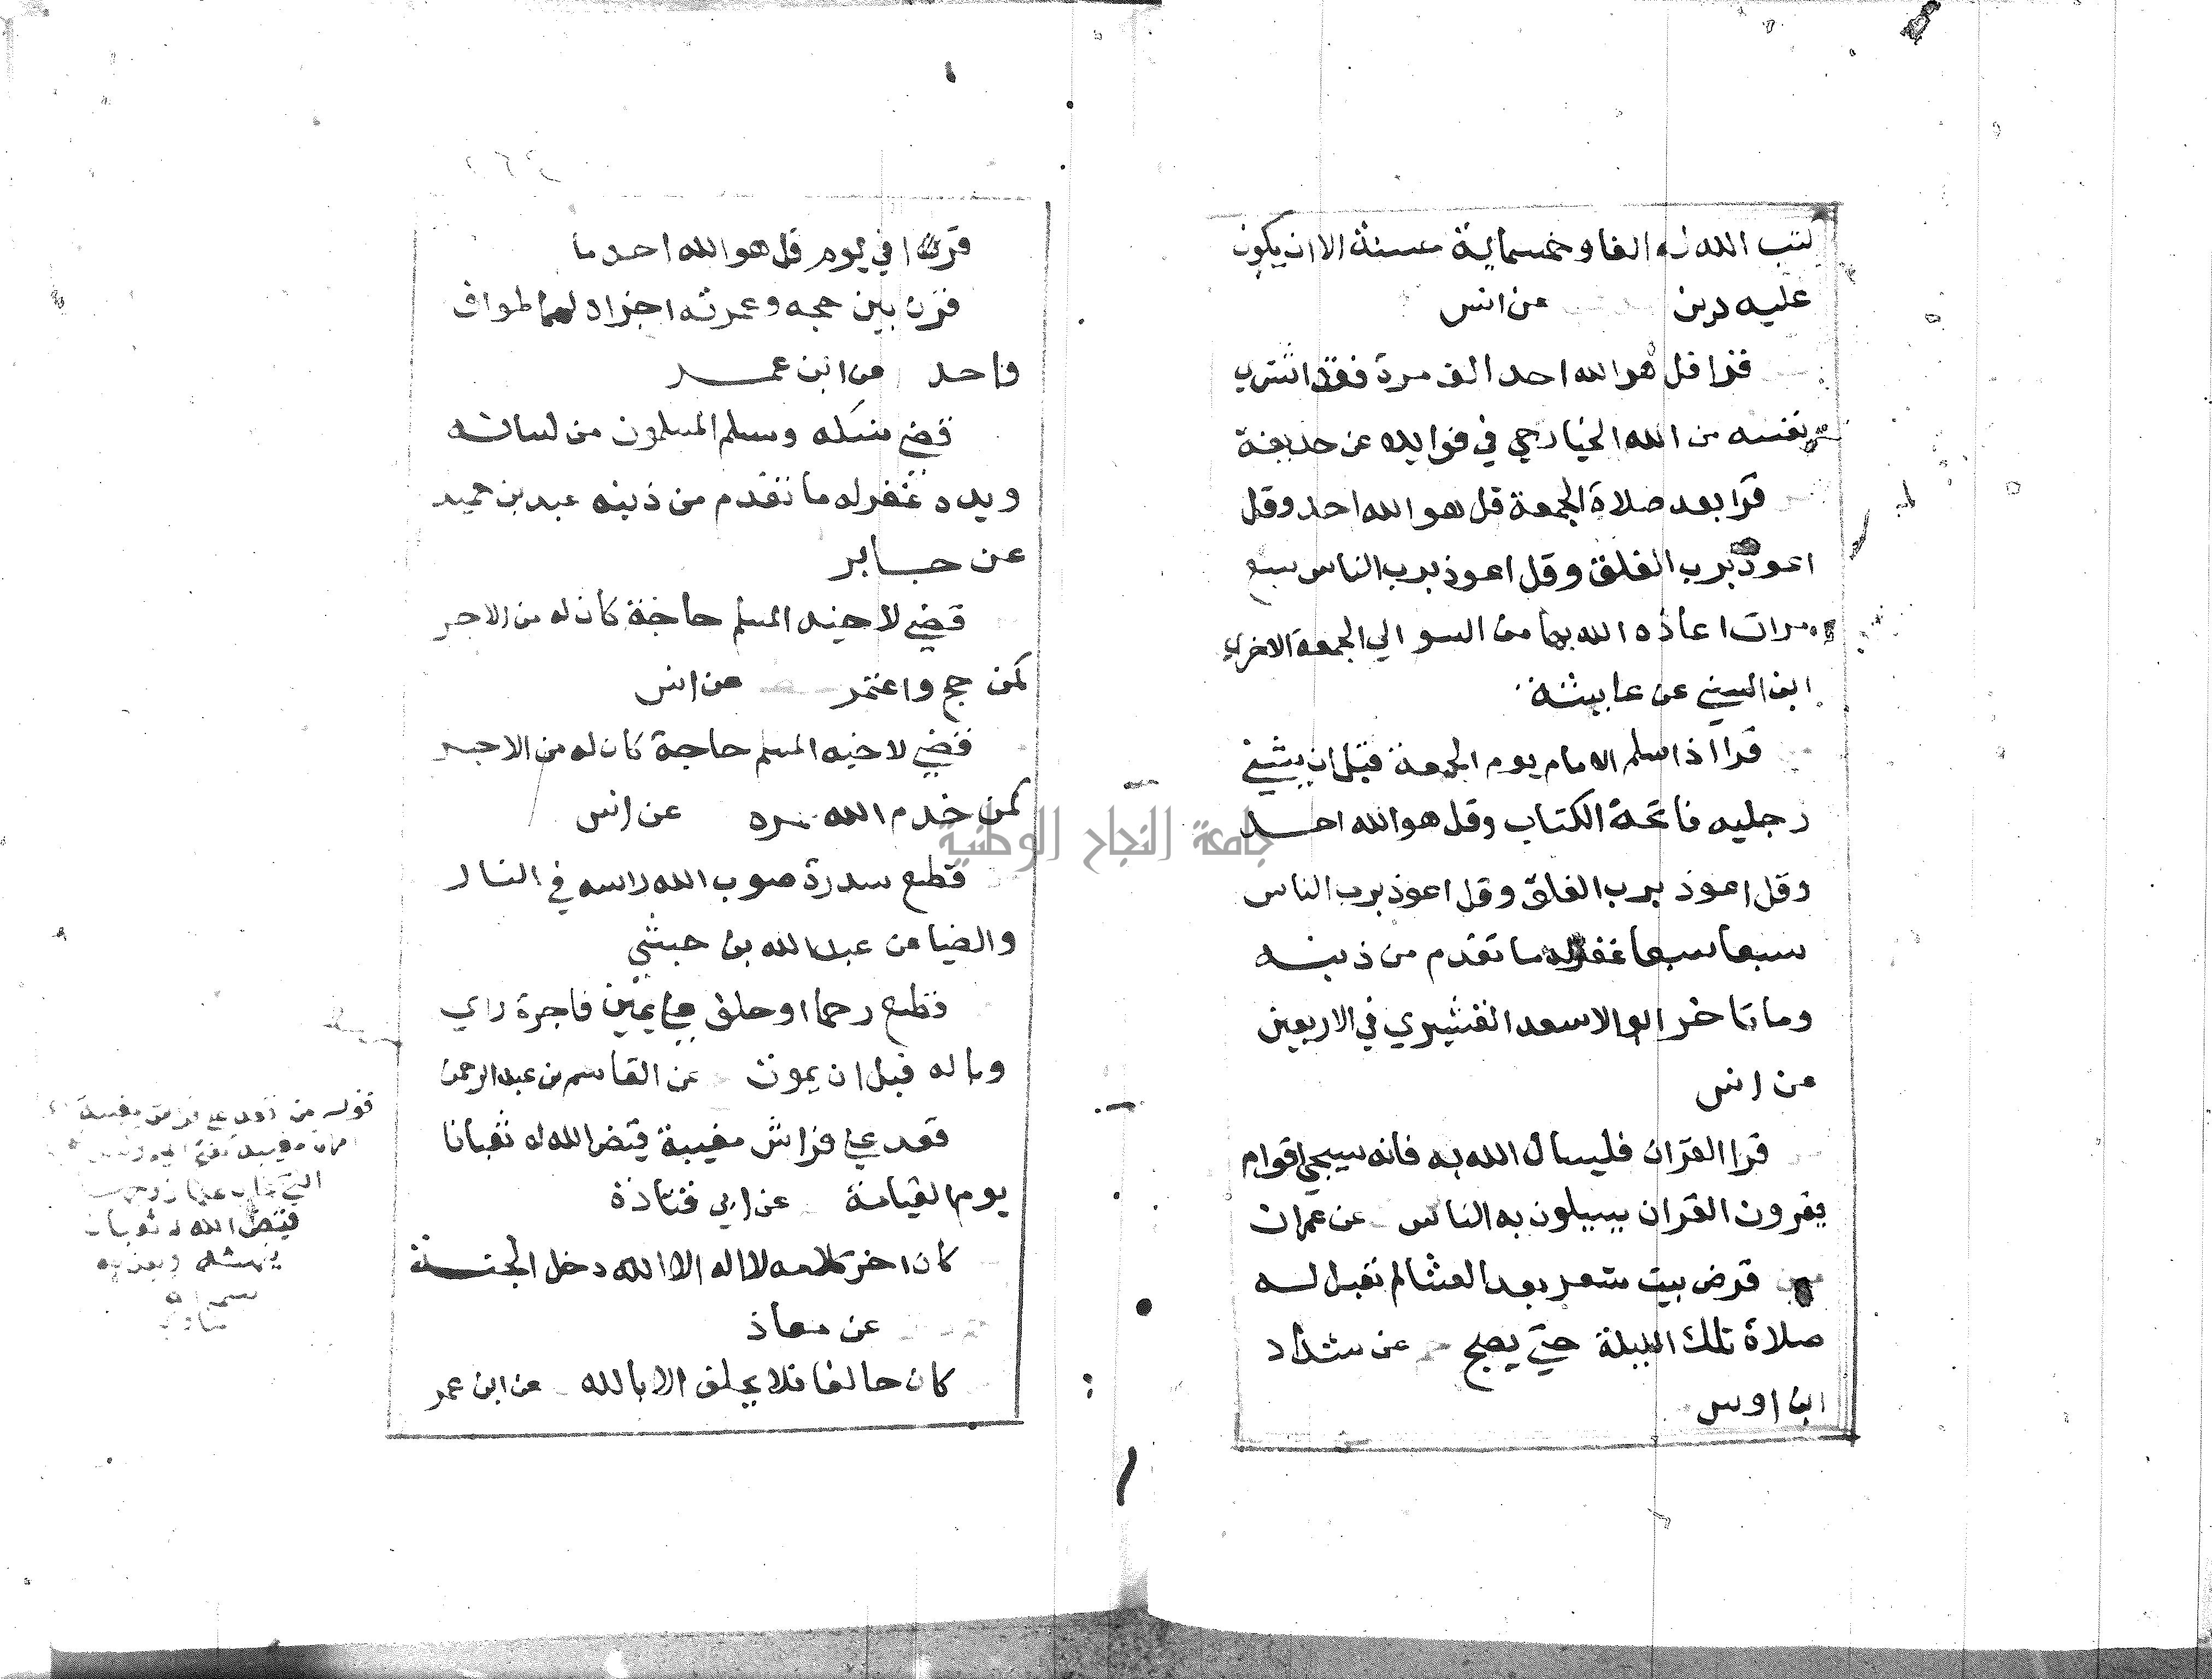 كتب الله له الفا وخمسماية حسنة الا ان يكون
عليه دين عن انس
قرا قل هو الله احد الف مرة فقد اشتري
نفسه من الله الخيارجي في فوايده عن حذيفة
قرا بعد صلاة الجمعة قل هو الله احد وقل
اعوذ برب الفلق وقل اعوذ برب الناس سبع
مرات اعاذه الله بها من السو الي الجمعة الاخري
ابن السني عن عايشة
قرا اذا سلم الامام يوم الجمعة قبل ان يثني
رجليه فاتحة الكتاب وقل هو الله احد
وقل اعوذ برب الفلق وقل اعوذ برب الناس
سبعا سبعا غفر له ما تقدم من ذنبه
وما تاخر ابو الاسعد القشيري في الاربعين
عن انس
قرا القران فليسال الله به فانه سيجي اقوام
يقرون القران يسيلون به الناس عن عمران
قرض بيت شعر بعد العشا لم تقبل له
صلاة تلك الليلة حتي يصبح عن شداد
ابن اوس
في يوم قل هو الله احد ما
قرن بين حجه وعمرته اجزاه لهما طواف
واحد عن ابن عمر
قضي نسكه وسلم المسلمون من لسانه
ويده غفر له ما تقدم من ذنبه عبد بن حميد
عن جابر
قضي لاخيه المسلم حاجة كان له من الاجر
كمن حج واعتمر عن انس
قضي لاخيه المسلم حاجة كان له من الاجر
كمن خدم الله عمره عن انس
قطع سدرة صوب الله راسه في النار
والضيا عن عبد الله بن حبشي
قطع رحما او حلف علي يمين فاجرة راي
وباله قبل ان يموت عن القاسم بن عبد الرحمن
قعد علي فراش مغيبة قيض الله له ثعبانا
يوم القيامة عن ابي قتادة
كان اخر كلامه لا اله الا الله دخل الجنة
عن معاذ
كان حالفا فلا يحلف الا بالله عن ابن عمر
قوله من قعد علي فراش مغيبة
قيض الله له ثعبانا
ينهشه ويعذبه
جامعة النجاح الوطنية